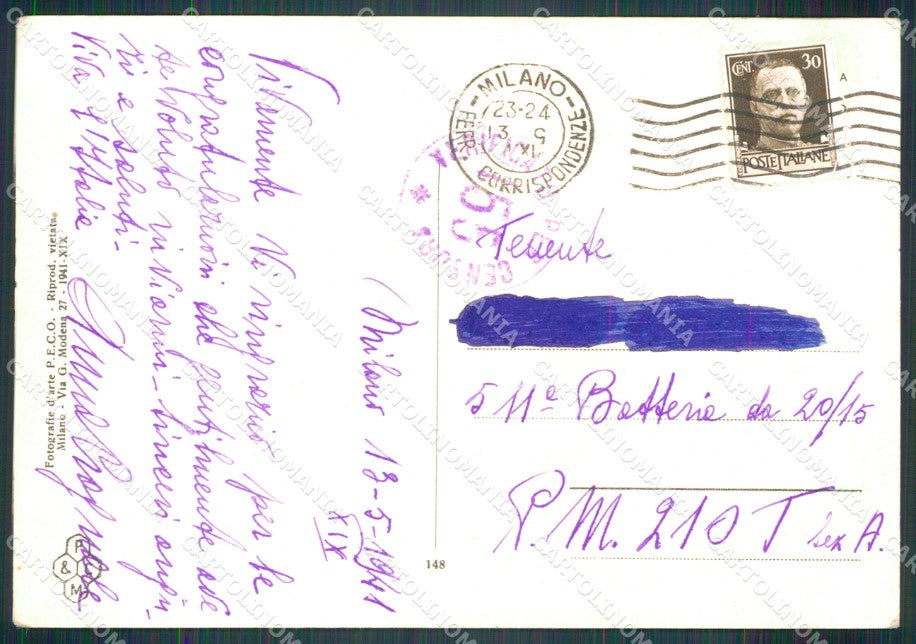 Vivamente Vi ringrazio per le
congratulazioni che gentilmente ave
te voluto inviarmi - Sinceri augu
ri e saluti -
Viva l'Italia
(Milano 13-5-1941
XIX
Fotografie d'arte P.E.C.O. - Riprod. vietata
Milano - Via G. Modena 27 - 1941-XIX
P
&
M
148
MILANO
23-24
13 5
CORRISPONDENZE
CENT. 30
POSTE ITALIANE
A
CENSURA
Tenente
511ª Batteria da 20/15
P.M. 210 T Sez A.
CARTOLINOMANIA